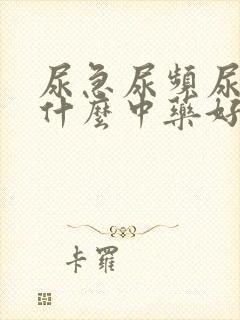 尿急尿頻尿
什麼中藥好
卡羅